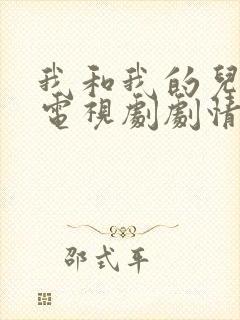 我和我的兒
電視劇劇情
邵式平